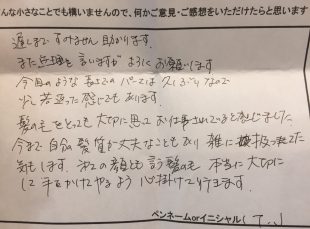 んな小さなことでも構いませんので、何かご意見・ご感想をいただけたらと思います
遅くまですみません助かります。
また 言いますが よろしくお願いします
今回のような パーマは久しぶりなので
若返った感じでもあります。
髪の毛をとっても大切に思ってお仕事されてると感じました
今まで自分の髪質が丈夫なこともあり 雑に扱ってた
気もします。第2の顔とも言う髪の毛 本当に大切に
して手をかけてやるよう心掛けて行きます。
ペンネームorイニシャル( T.